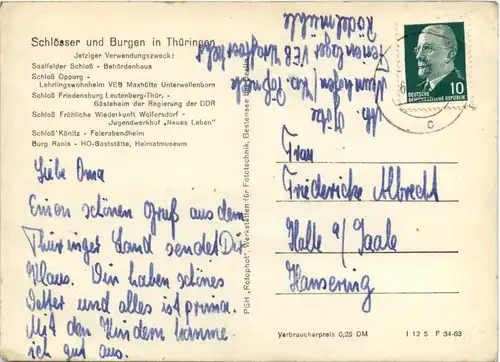 Schlösser und Burgen in Thüringen
Jetziger Verwendungszweck:
Saalfelder Schloß - Behördenhaus
Schloß Oppurg -
Lehrlingswohnheim VEB Maxhütte Unterwellenborn
Schloß Friedensburg Leutenberg-Thür. -
Gästeheim der Regierung der DDR
Schloß Fröhliche Wiederkunft Wolfersdorf -
Jugendwerkhof „Neues Leben"
Schloß Könitz - Feierabendheim
Burg Ranis - HO-Gaststätte, Heimatmuseum
Liebe Oma
Einen schönen Gruß aus dem
Thüringer Land sendet Dir
Klaus. Wir haben schönes
Wetter und alles ist prima.
Mit den Kindern komme
ich gut aus.
PGH „Rotophot", Werkstätten für Fototechnik, Bestensee
Ferienlager VEB
10
DEUTSCHE
DEMOKRATISCHE REPUBLIK
c
Frau
Friedericke Albrecht
Halle a/ Saale
Hansering
Verbraucherpreis 0,25 DM
I 12 5 F 34-63